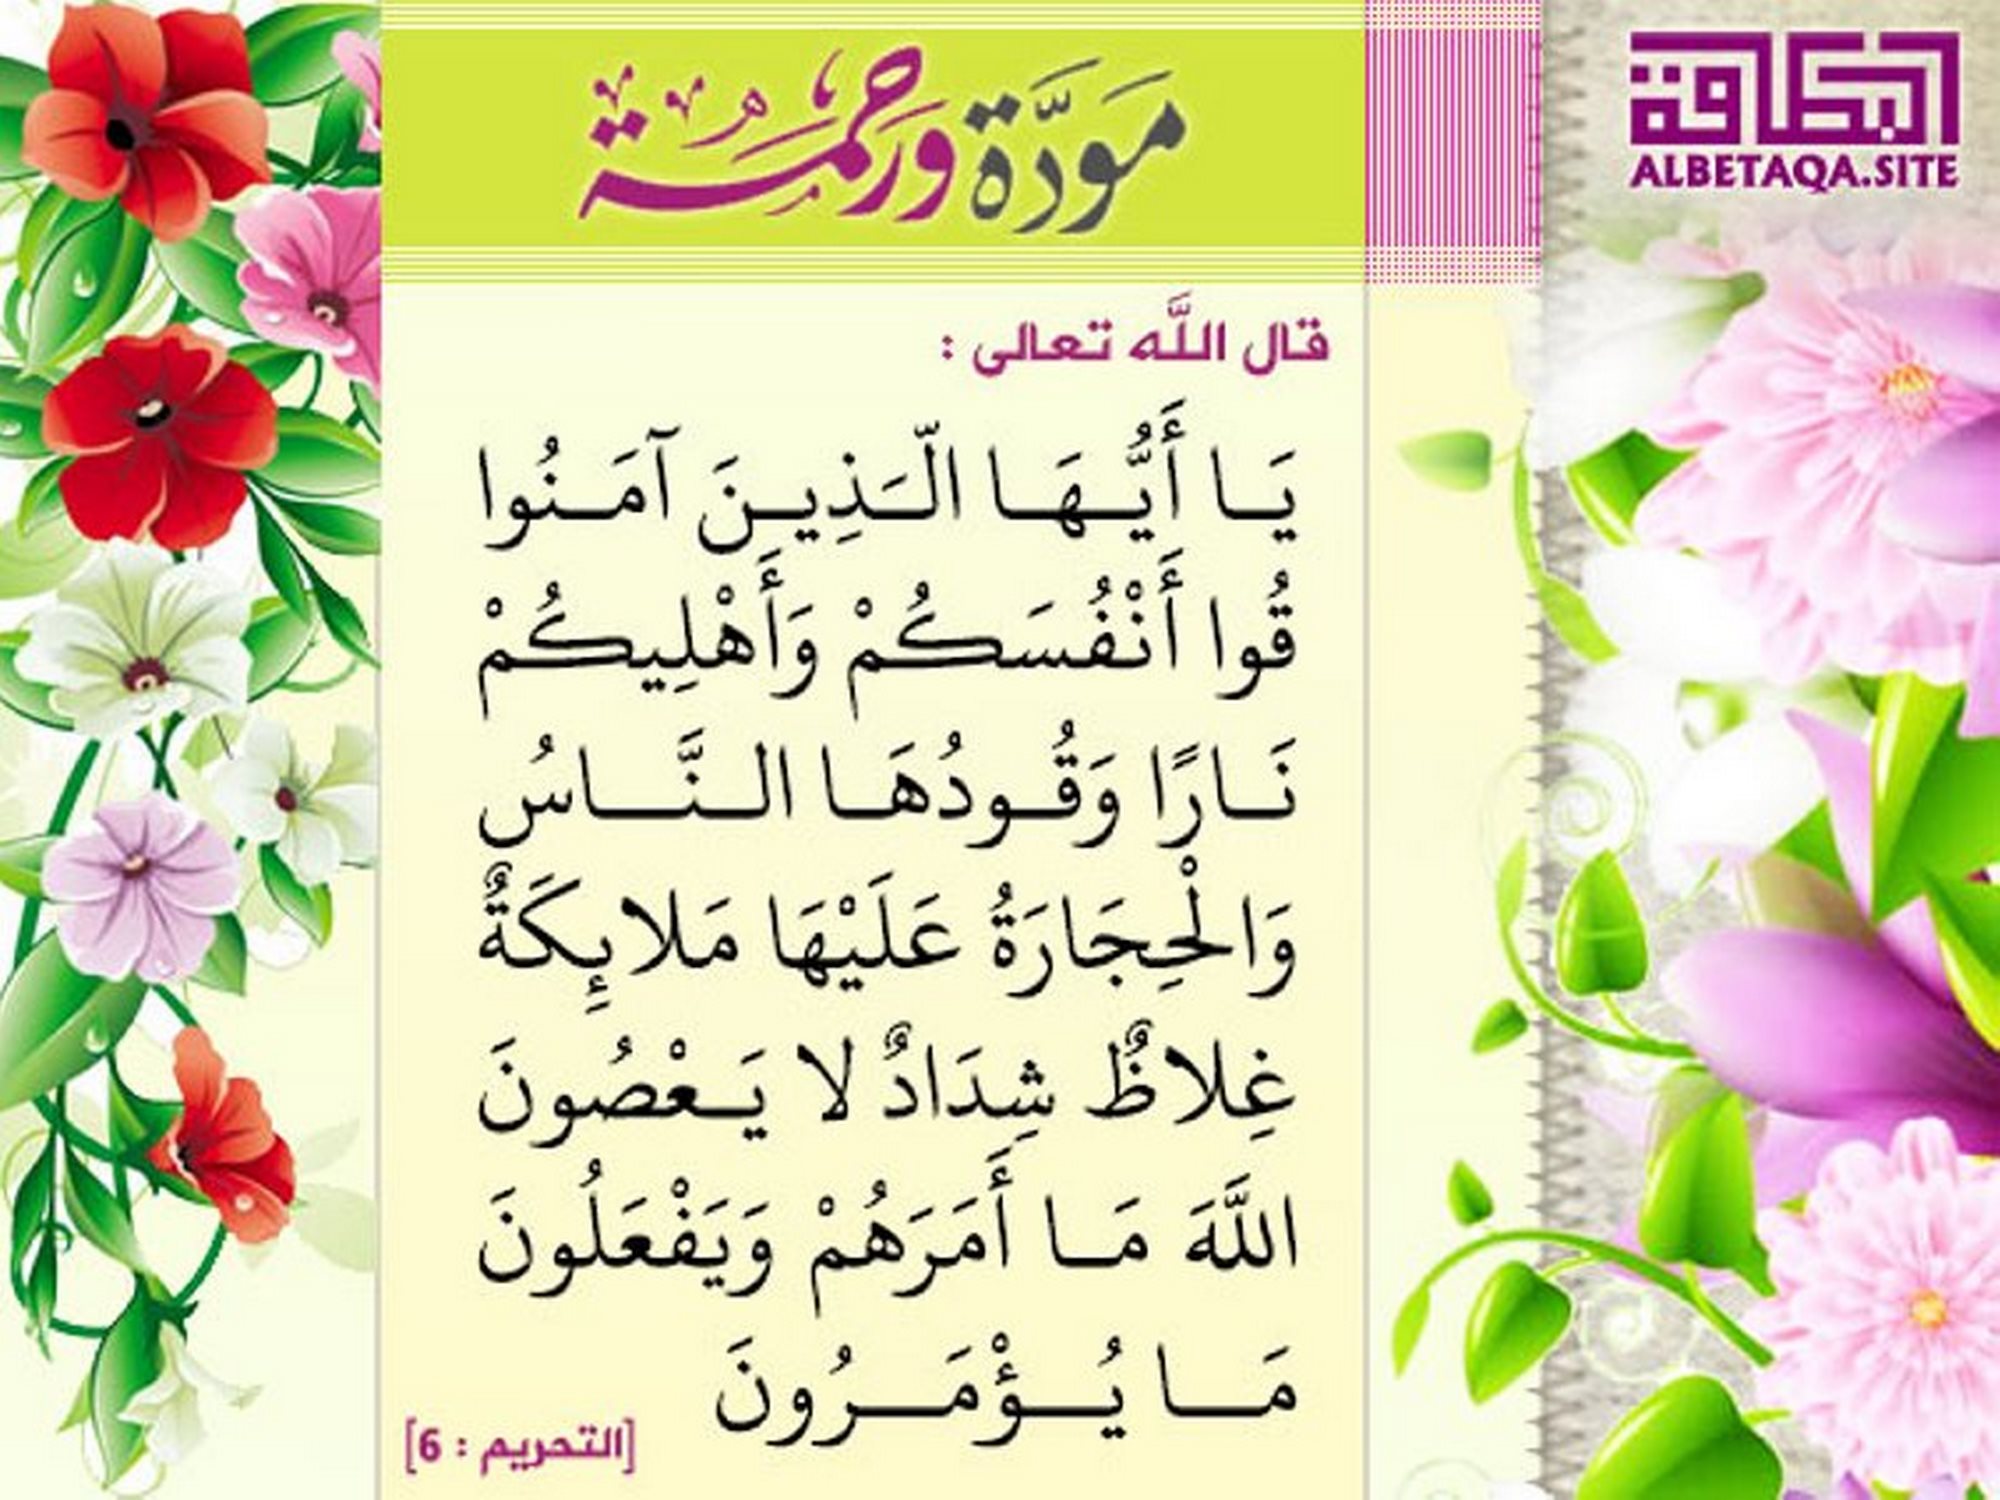 مَوَدَّة ورحمة
البطاقة
ALBETAQA.SITE
قال اللَّه تعالى :
يَـا أَيُّـهَـا الّـَذِيـنَ آمَـنُوا
قُوا أَنْفُسَكُمْ وَأَهْلِيكُمْ
نَـارًا وَقُـودُهَـا الـنَّـاسُ
وَالْحِجَارَةُ عَلَيْهَا مَلائِكَةٌ
غِلاظٌ شِدَادٌ لا يَـعْصُونَ
اللَّهَ مَـا أَمَرَهُمْ وَيَفْعَلُونَ
مَـا يُـؤْمَـرُونَ
[التحريم : 6]